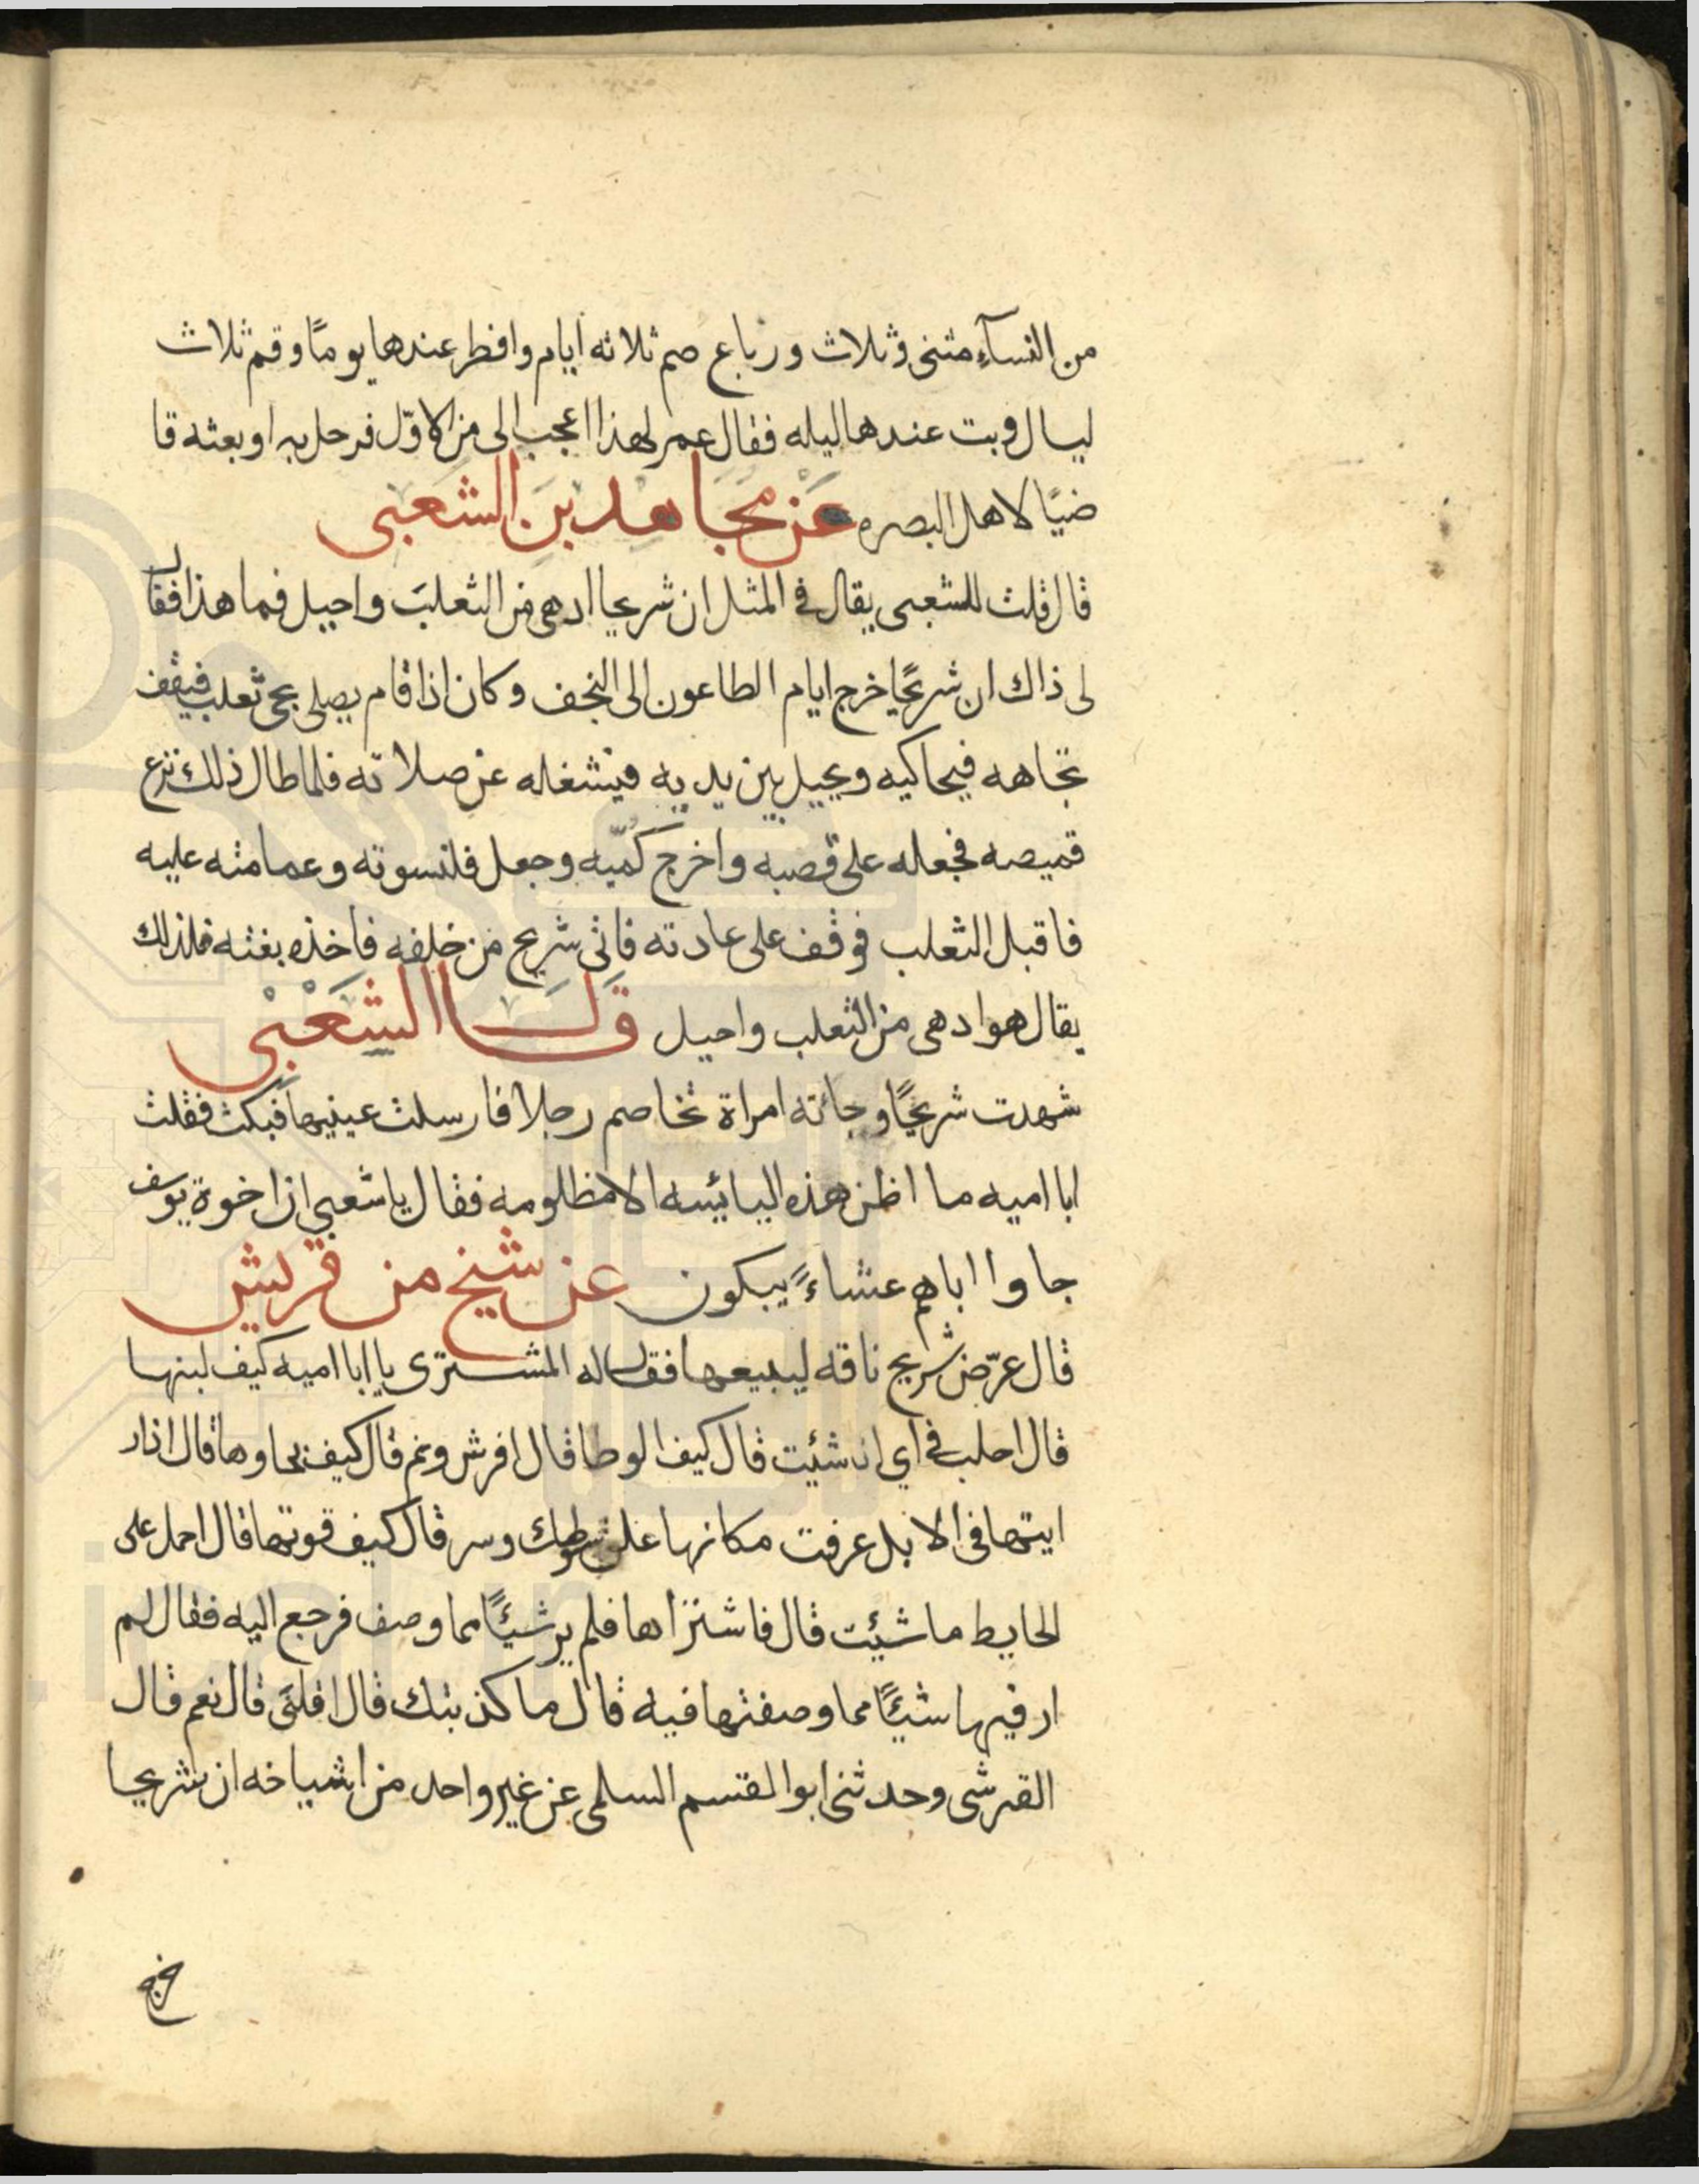 من النسآءِ مثنى وثلاث ورباع صم ثلاثه ايام وافطر عندها يومًا وقم ثلاث
ليال وبت عندها ليله فقال عمر لهذا اعجب الى من الاوّل فرحل به او بعثه قا
ضيًا لاهل البصره عَن مجَاهد بن الشعبى
قال قلت للشعبى يقال في المثل ان شريحا ادهى من الثعلب واحيل فما هذا فقال
لى ذاك ان شريحًا خرج ايام الطاعون الى النجف وكان اذا قام يصلى يجى ثعلب فيقف
تجاهه فيحاكيه ويخيل بين يديه فيشغله عن صلاته فلما طال ذلك نزع
قميصه فجعله على قصبه واخرج كمّيه وجعل قلنسوته وعمامته عليه
فاقبل الثعلب فوقف على عادته فاتى شريح من خلفه فاخذه بغته فلذلك
يقال هو ادهى من الثعلب واحيل قال الشَعْبى
شهدت شريحًا وجائته امراة تخاصم رجلا فارسلت عينيها فبكت فقلت
ابا اميه ما اظن هذه البائيسه الا مظلومه فقال ياشعبي ان اخوة يوسف
جاوا اباهم عشاءً يبكون عن شيخ من قريش
قال عرّض شريح ناقه ليبيعها فقال له المشترى يا ابا اميه كيف لبنها
قال احلب في اي انا شيئت قال كيف الوطا قال افرش ونم قال كيف نجاوها قال اذا ر
ايتها فى الابل عرفت مكانها علق سوطك وسر قال كيف قوتها قال احمل على
الحايط ما شيئت قال فاشتراها فلم ير شيئًا مما وصف فرجع اليه فقال لم
ار فيها شيئًا مما وصفتها فيه قال ما كذبتك قال اقلنى قال نعم قال
القرشى وحدثنى ابوا لقسم السلمى عن غير واحد من اشياخه ان شريحا
خرج